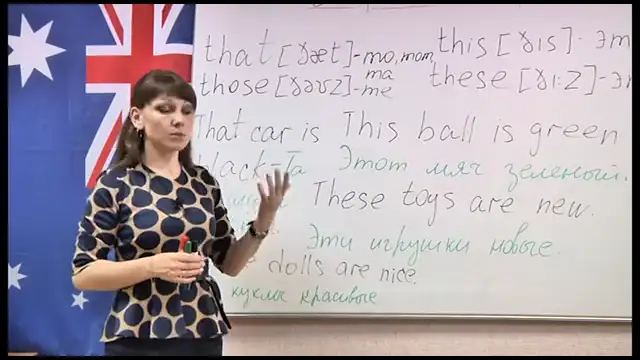 that [ðæt]-то, тот, this [ðɪs]- эт
та
those [ðəʊz]-те these [ði:z]-э
That car is This ball is green
black-Та Этот мяч зелёный.
These toys are new.
Эти игрушки новые.
dolls are nice.
куклы красивые